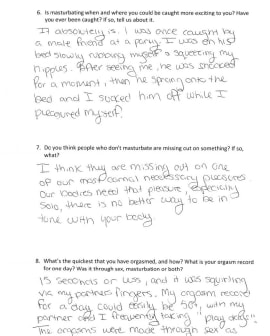 6. Is masturbating when and where you could be caught more exciting to you? Have
you ever been caught? If so, tell us about it.
It absolutely is. I was once caught by
a male friend at a party. I was on his
bed slowly rubbing myself & squeezing my
nipples. After seeing me, he was shocked
for a moment, then he sprang onto the
bed and I sucked him off while I
pleasured myself.
7. Do you think people who don't masturbate are missing out on something? If so,
what?
I think they are missing out on one
of our most carnal necessary pleasures.
Our bodies need that pleasure, especially
solo, there is no better way to be in
tune with your body.
8. What's the quickest that you have orgasmed, and how? What is your orgasm record
for one day? Was it through sex, masturbation or both?
15 seconds or less, and it was squirting
via my partners fingers. My orgasm record
for a day could easily be 50+, with my
partner and I frequently taking "play days".
The orgasms were made through sex and